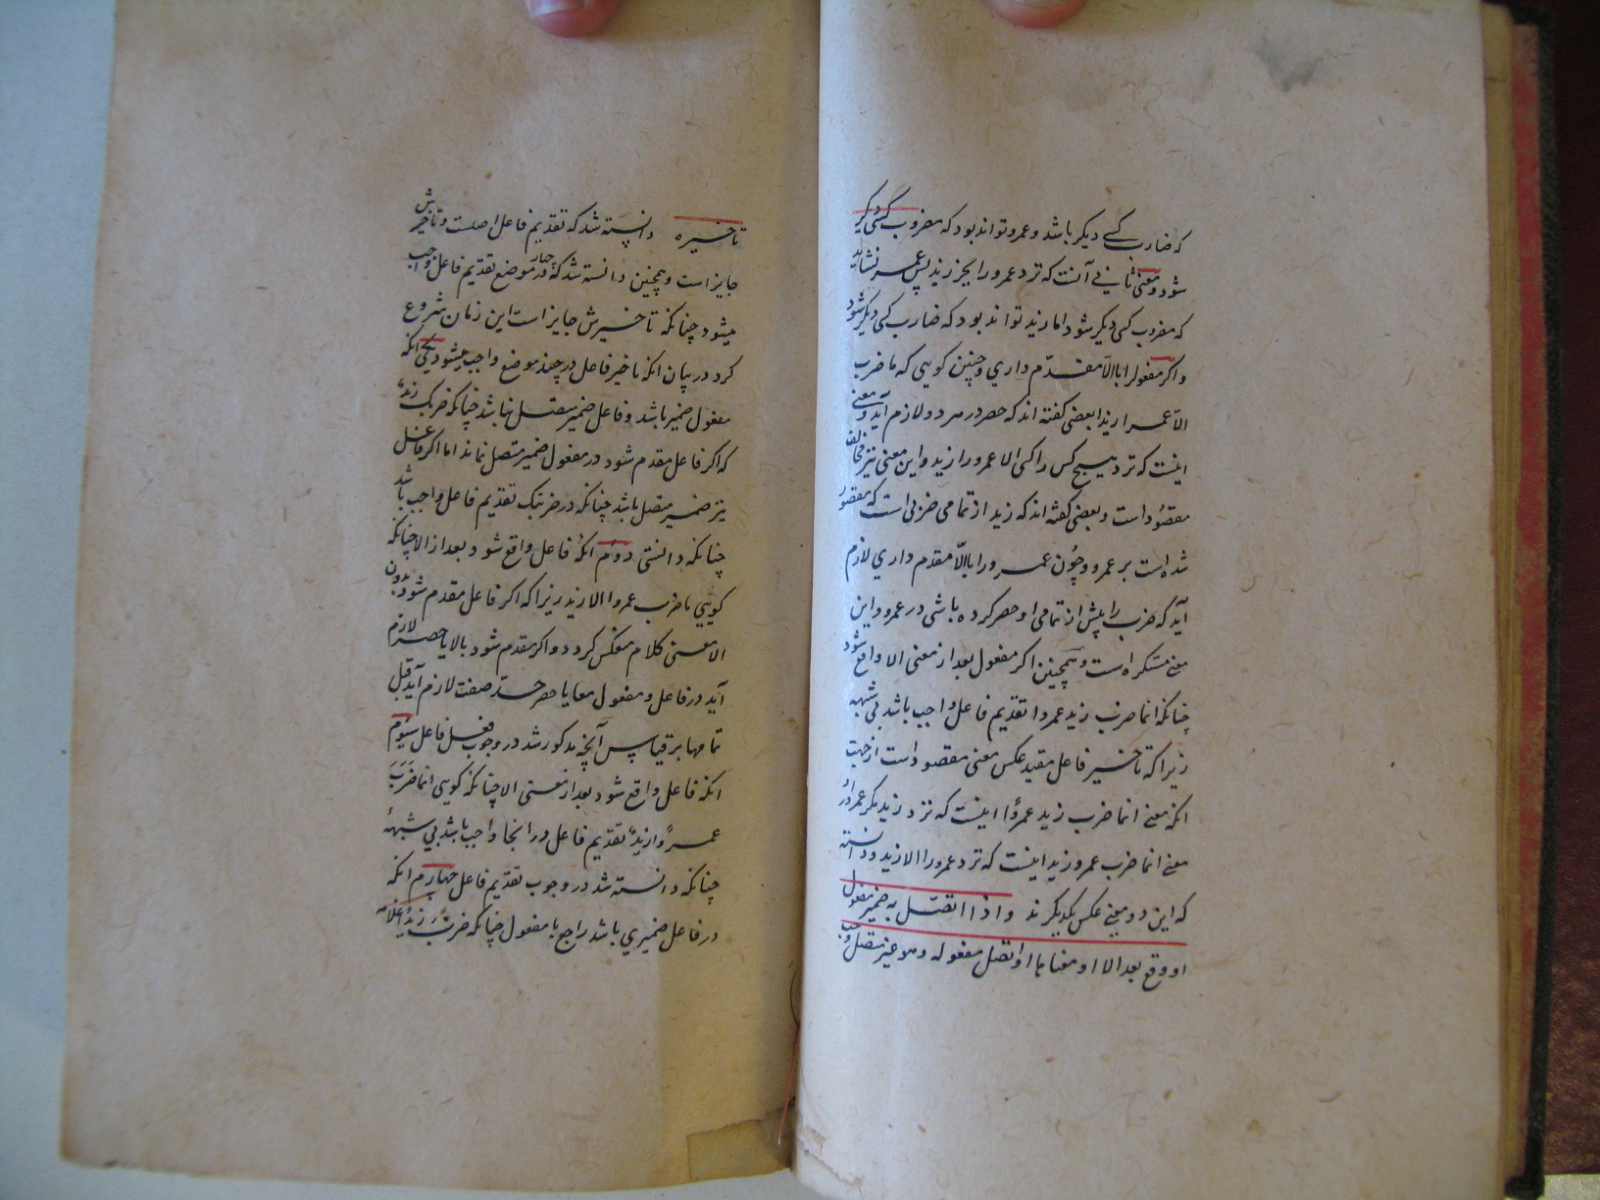 که ضارب کسے دیگر باشد و عمرو تواند بود که مضروب کسی دیگر
شود و معنی ثانی آنست که نزد عمرو را بجز زید پس عمر نشاید
که مضروب کسی دیگر شود اما زید تواند بود که ضارب کسی دیگر شود
و اکر مفعول را با الا مقدّم داري و چنین کویی که ما ضرب
الّا عمرا زید بعضی کفته اند که حصر در هر دو لازم آید و معنی
اینست که نزد هیچ کس را کسی الا عمرو را زید و این معنی نیز مخالف
مقصود است و بعضی کفته اند که زید از تمامی ضربی است که مقصور
شده است بر عمرو و چون عمرو را با الّا مقدم داري لازم
آید که ضرب را پیش از تمامی او حصر کرده باشی در عمرو و این
معنی مستکره است و همچنین اکر مفعول بعد از معنی الا واقع شود
چنانکه انما ضرب زید عمروا تقدیم فاعل واجب باشد بی شبهه
زیرا که تاخیر فاعل مفید عکس معنی مقصود است از جهت
انکه معنی انما ضرب زید عمروًا اینست که نزد زید مکر عمرو را و
معنی انما ضرب عمرو زید اینست که نزد عمرو را الا زید و دانسته
که این دو معنی عکس یکدیکرند و اذا اتصّل به ضمیر مفعول
او وقع بعد الا او معناها او اتصل مفعوله و هو غیر متصل وجب
تاخیره دانسته شد که تقدیم فاعل اصلست و تاخیرش
جایز است و همچنین دانسته شد که در چهار موضع تقدیم فاعل واجب
میشود چنانکه تاخیرش جایز است این زمان شروع
کرد در بیان انکه تاخیر فاعل در چند موضع واجب میشود یکی انکه
مفعول ضمیر باشد و فاعل ضمیر متصل نباشد چنانکه ضربک زید
که اکر فاعل مقدم شود در مفعول ضمیر متصل نماند اما اکر فاعل
نیز ضمیر متصل باشد چنانکه در ضربتک تقدیم فاعل واجب باشد
چنانکه دانستی دوم انکه فاعل واقع شود بعد از الا چنانکه
کویی ما ضرب عمروا الا زید زیرا که اکر فاعل مقدم شود بدون
الا معنی کلام منعکس کردد و اکر مقدم شود با الا یا حصر لازم
آید در فاعل و مفعول معا یا حصر صفت لازم آید قبل
تمامها بر قیاس آنچه مذکور شد در وجوب فاعل سیوم
انکه فاعل واقع شود بعد از معنی الا چنانکه کویی انما ضَرَبَ
عمروًا زیدٌ تقدیم فاعل در انجا واجب باشد بی شبهه
چنانکه دانسته شد در وجوب تقدیم فاعل چهارم انکه
در فاعل ضمیري باشد راجع با مفعول چنانکه ضرب زیدًا غلامه